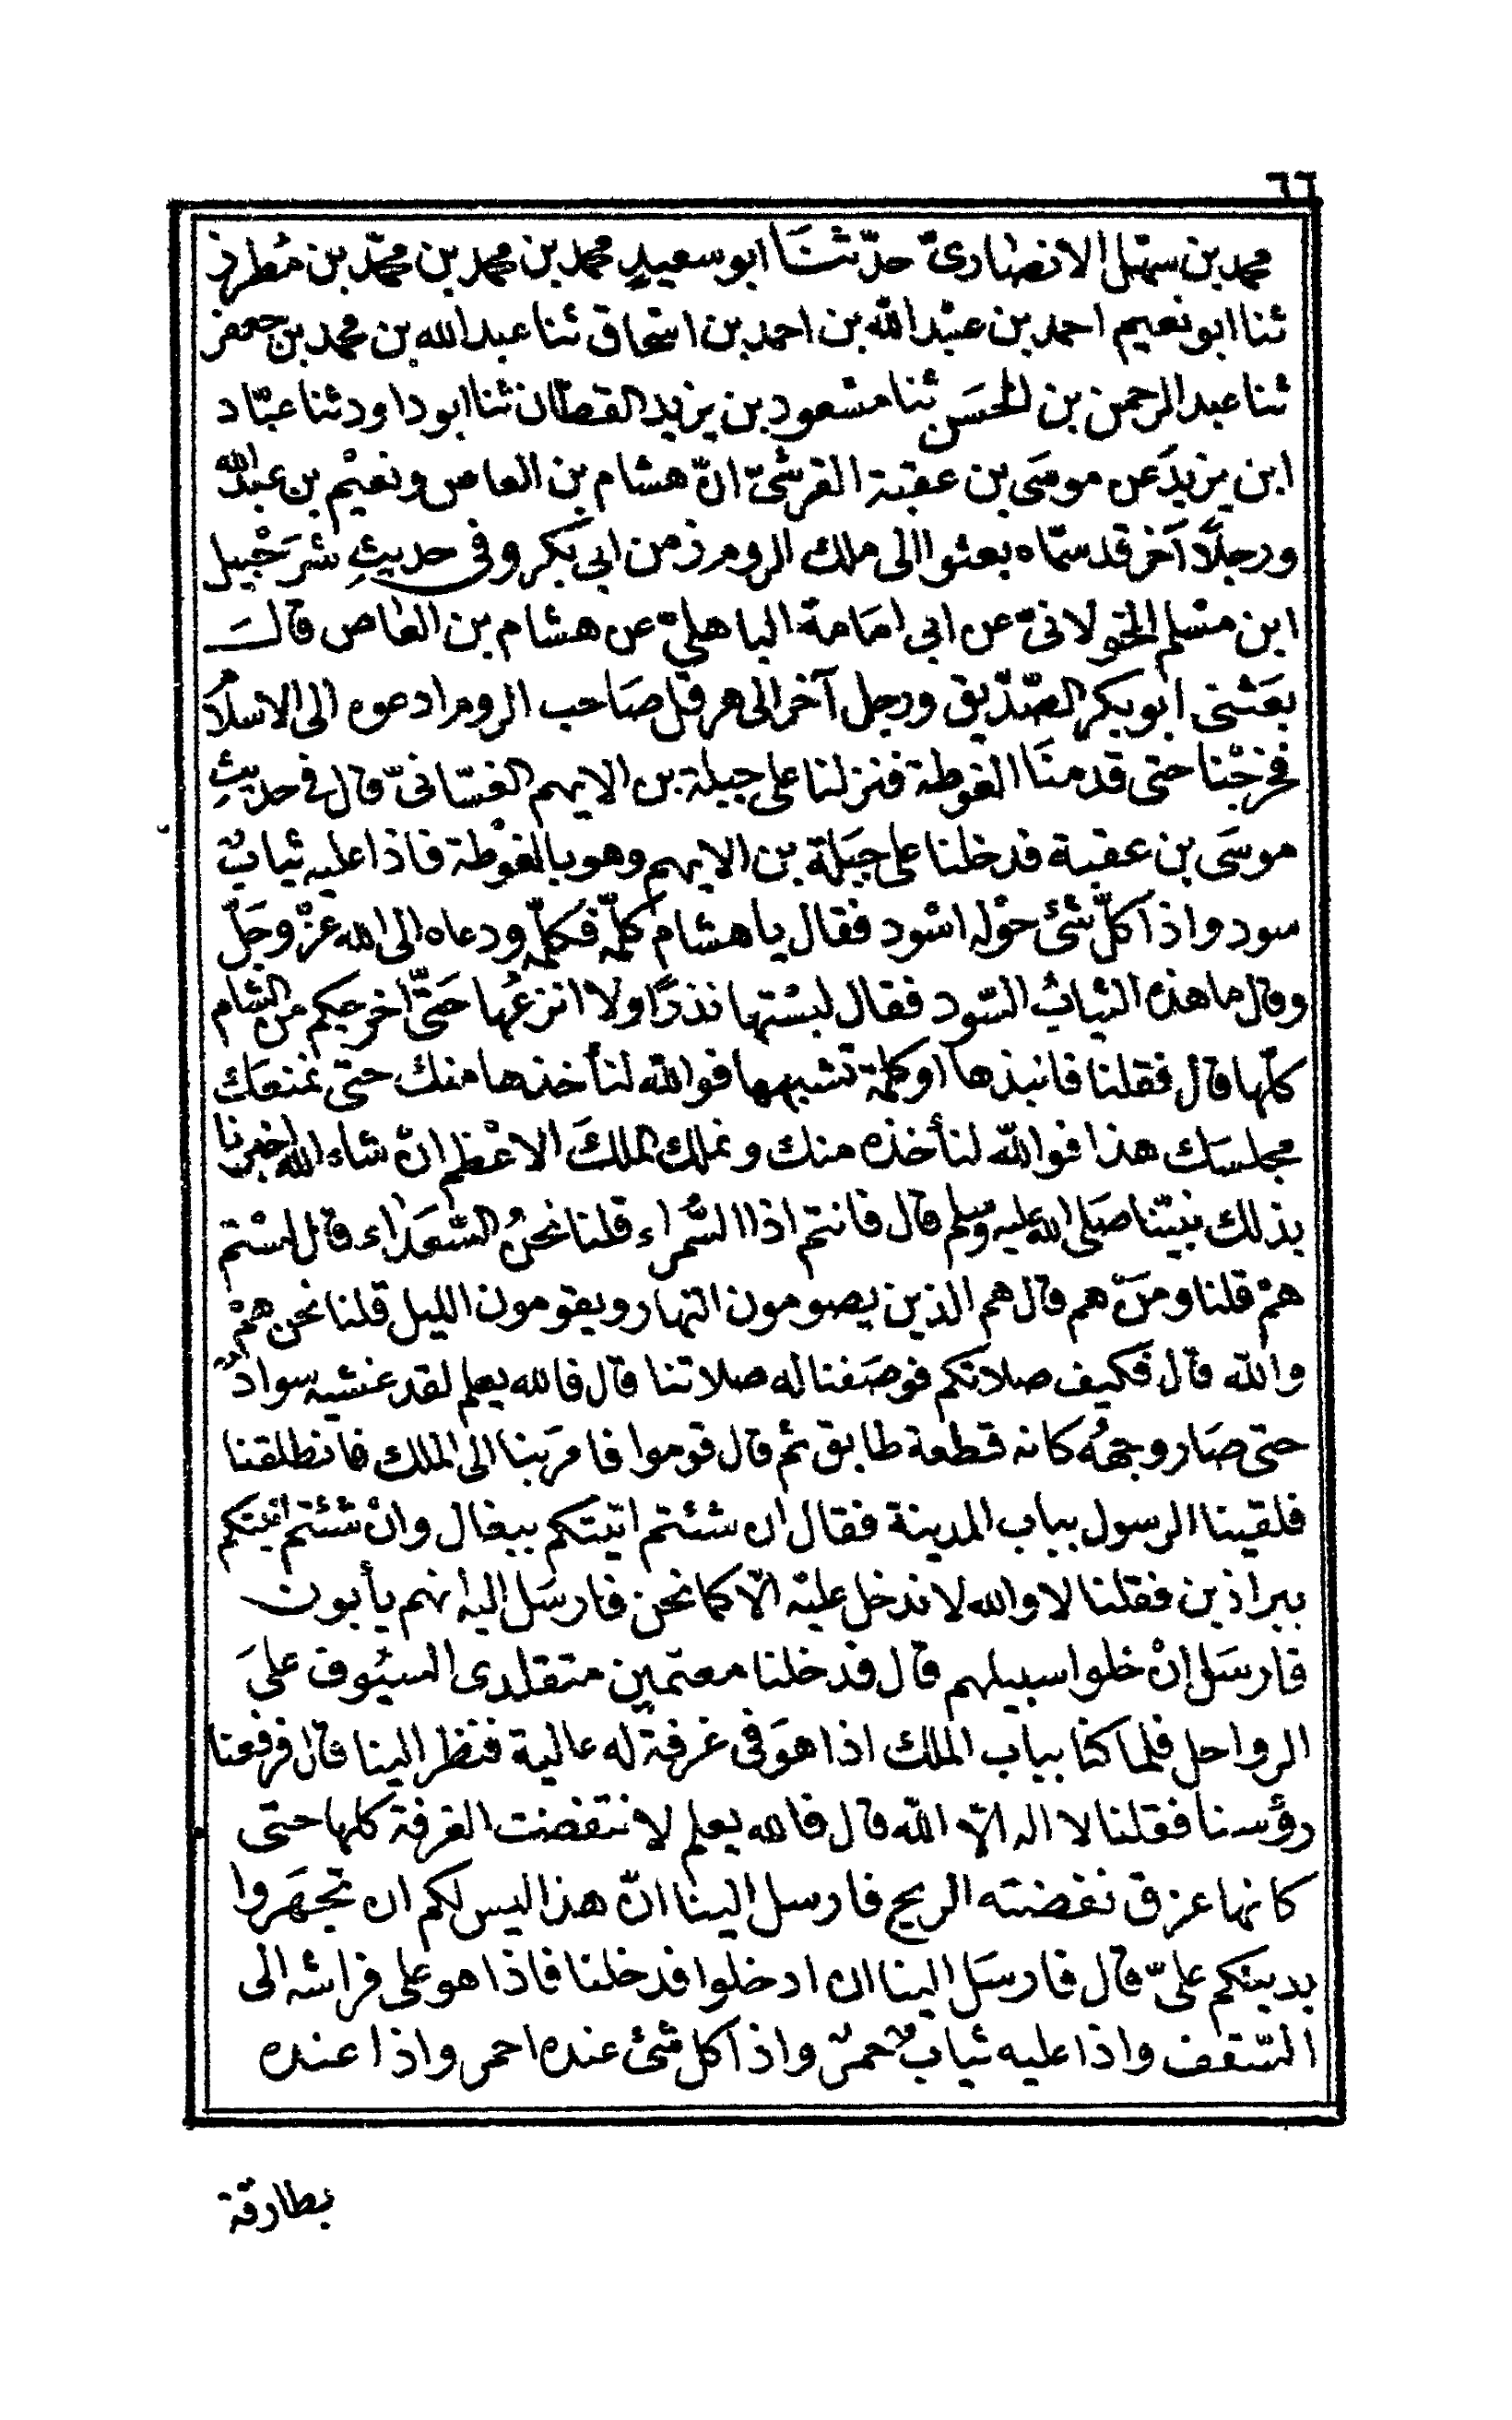 ٦٦
محمد بن سهل الانصاریّ حدّثنَا ابو سعیدٍ محمد بن محمد بن محمّد بن مُطرز
ثنا ابو نعیم احمد بن عبْد اللّه بن احمد بن اسْحاق ثنا عبد الله بن محمد بن جعفر
ثنا عبد الرحمن بن الحسَن ثنا مسْعود بن یزید القطّان ثنا ابو داود ثنا عبّاد
ابن یزیدَ عن موسَی بن عقبة القرشیّ انّ هشام بن العاص ونعیْم بن عبد اللّه
ورجلًا آخر قد سمّاه بعثوا الی ملك الروم زمن ابی بَکر وفی حدیثِ شرَحْبیل
ابن مسْلم الخولانیّ عن ابی امَامة الباهلیّ عن هشام بن العاص قالَ
بعَثنی ابو بکر الصّدّیق ورجل آخر الی هرقل صَاحب الروم ادعوه الی الاسلام
فخرجْنا حتی قدمنَا الغوطة فنزلنا علی جبلة بن الایهم الغسّانیّ قال فی حدیثِ
موسَی بن عقبة فدخلنا علی جبَلة بن الایهم وهو بالغوْطة فاذا علیه ثیابٌ
سود واذا کلّ شئ حوْله اسْود فقال یا هشام کلّمه فکلّمه ودعاه الی الله عزّ وجَلّ
وقال ما هذه الثیابُ السّود فقال لبسْتها نذرًا ولا انزعُها حَتّی اخرجکم من الشام
کلّها قال فقلنا فانبذها او کلمة تشبهها فواللّه لنأخذها منك حتی نمنعَك
مجلسَك هذا فواللّه لنأخذه منك ونملك الملكَ الاعْظم انْ شاء الله اخبرنا
بذلك نبیّنا صَلی الله علیه وسلم قال فانتم اذا السُّمَراء قلنا نحنُ السّعَداء قال لسْتم
همْ قلنا ومَنْ هم قال هم الذین یصومون النهار ویقومون اللیل قلنا نحن همْ
واللّه قال فکیف صلاتکم فوصَفنا له صلاتنا قال فالله یعلم لقد غشیه سوادٌ
حتی صَار وجهُه کانه قطعة طابق ثم قال قوموا فامرَ بنا الی الملك فانطلقنا
فلقینا الرسول بباب المدینة فقال ان شئتم اتیتکم ببغال وانْ شئتم اتیتکم
ببراذین فقلنا لا والله لا ندخل علیْه الّا کما نحن فارسَل الیه انهم یأبون
فارسَل انْ خلوا سبیلهم قال فدخلنا معتمّین متقلدی السیُوف علیَ
الرواحل فلما کنا بباب الملك اذا هوَ فی غرفة له عالیة فنظر الینا قال فرفعنا
رؤسنا فقلنا لا اله الّا اللّه قال فالله یعلم لانتفضت الغرفة کلها حتی
کانها عزق نفضته الریح فارسل الینا انّ هذا لیس لکم ان تجهَروا
بدینکم علیّ قال فارسَل الینا ان ادخلوا فدخلنا فاذا هو علی فراشه الی
السّقف واذا علیه ثیابٌ حمرٌ واذا کل شئ عنده احمر واذا عنده
بطارقة